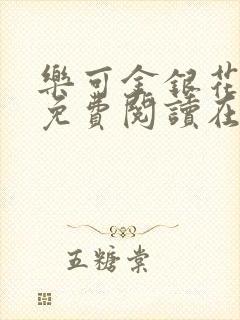 樂可金銀花
免費閱讀在
五糖棠